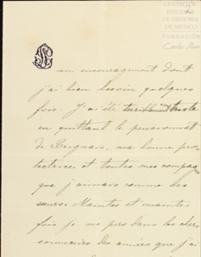 CENTRO DE
ESTUDIOS
DE HISTORIA
DE MÉXICO
FUNDACIÓN
Carlos Slim
un encouragement dont
j'ai bien besoin quelques
fois. J'ai été triste
en quittant le pensionnat
de ma bonne pro-
tectrice et toutes mes compag
que j'aimais comme des
sœurs. Maintes et maintes
fois je me perds dans les chers
souvenirs des années que j'ai